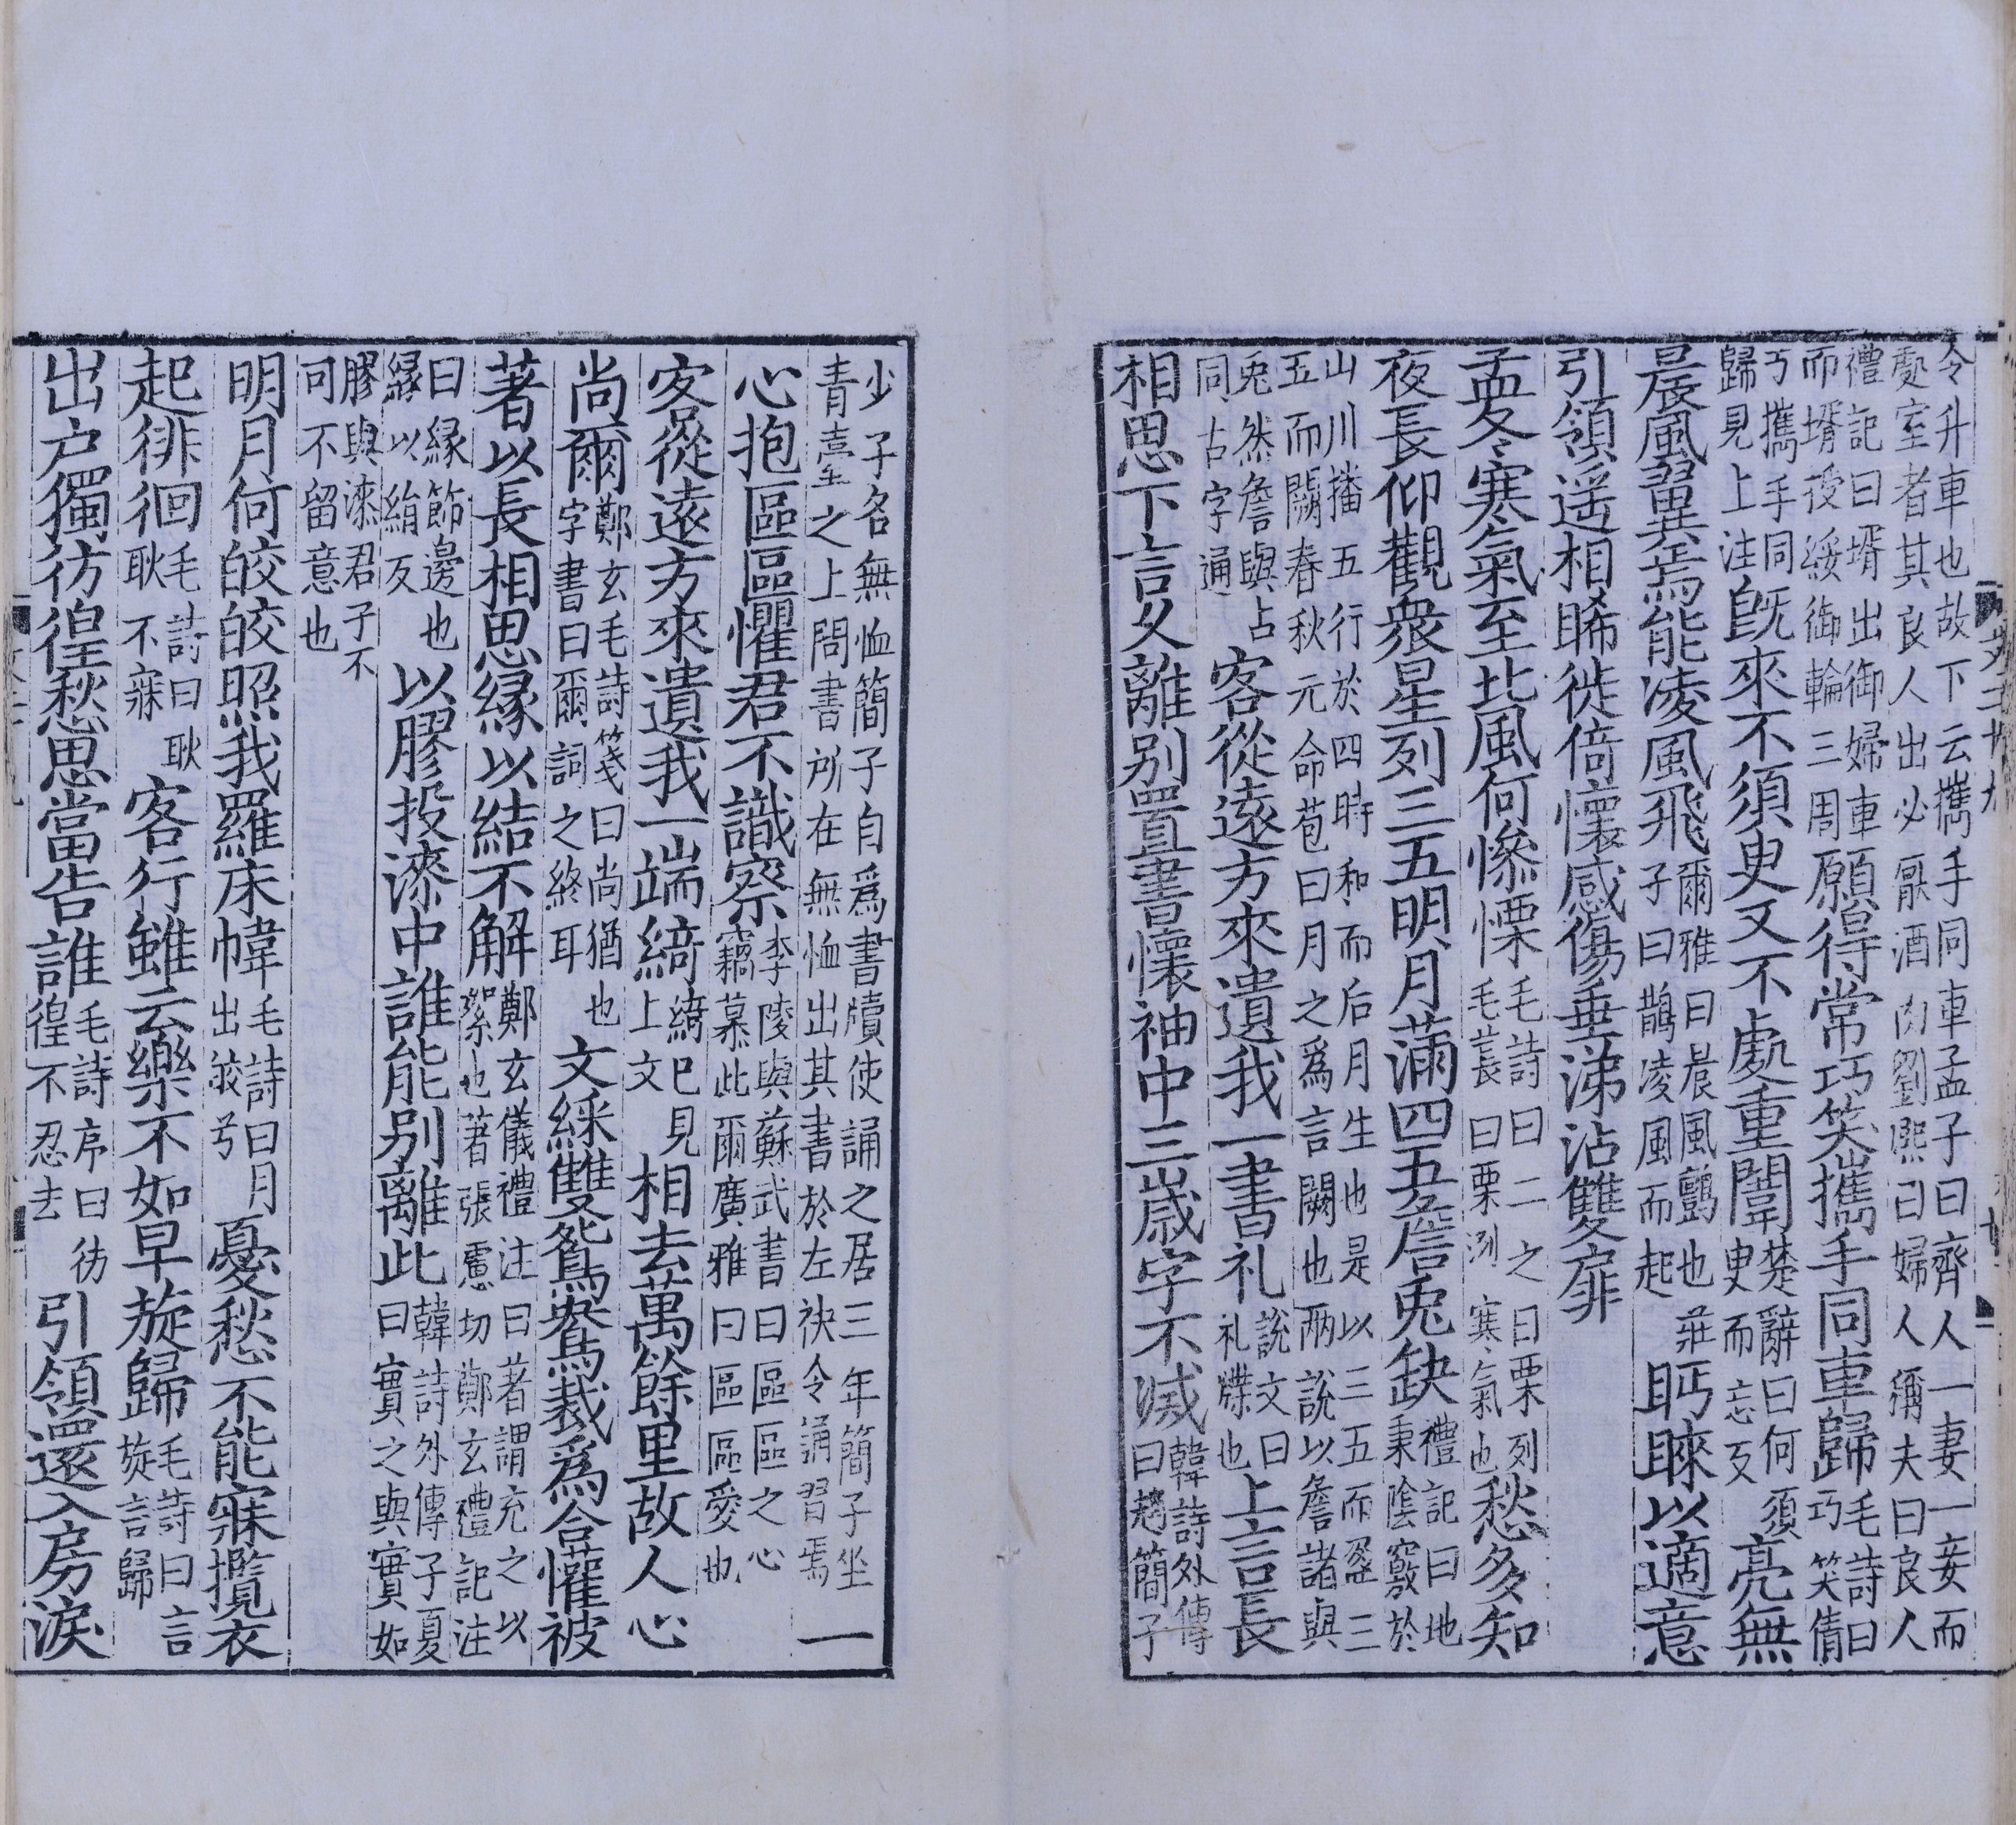 令升車也故下云攜手同車孟子曰齊人一妻一妾而處室者其良人出必厭酒肉劉熙曰婦人稱夫曰良人
禮記曰壻出御婦車而壻授綏御輪三周願得常巧笑攜手同車歸毛詩曰巧笑倩
丂攜手同歸見上注既來不須臾又不處重闈楚辭曰何須臾而忘反亮無
晨風翼焉能凌風飛爾雅曰晨風鸇也莊子曰鵲凌風而起眄睞以適意
引領遥相睎徙倚懷感傷垂涕沾雙扉
孟冬寒氣至北風何慘慄毛詩曰二之日栗列毛萇曰栗冽寒氣也愁多知
夜長仰觀衆星列三五明月滿四五詹兎缺禮記曰地秉陰竅於
山川播五行於四時和而后月生也是以三五而盈三五而闕春秋元命苞曰月之爲言闕也两說以詹諸與
兎然詹與占同古字通客從遠方來遺我一書札說文曰札牒也上言長
相思下言乆離别置書懷袖中三歲字不滅韓詩外傳曰趙簡子
少子名無恤簡子自爲書牘使誦之居三年簡子坐青臺之上問書所在無恤出其書於左袂令誦習焉一
心抱區區懼君不識察李陵與蘇武書曰區區之心竊慕此爾廣雅曰區區愛也
客從遠方來遺我一端綺綺巳見上文相去萬餘里故人心
尚爾鄭玄毛詩箋曰尚猶也字書曰爾詞之終耳文綵雙鴛鴦裁爲合懽被
著以長相思緣以結不解鄭玄儀禮注曰著謂充之以絮也著張慮切鄭玄禮記注
曰緣飾邊也緣以絹反以膠投漆中誰能别離此韓詩外傳子夏曰實之與實如
膠與漆君子不可不留意也
明月何皎皎照我羅床幃毛詩曰月出皎兮憂愁不能寐攬衣
起徘徊毛詩曰耿耿不寐客行雖云樂不如早旋歸毛詩曰言旋言歸
出户獨彷徨愁思當告誰毛詩序曰彷徨不忍去引領還入房淚